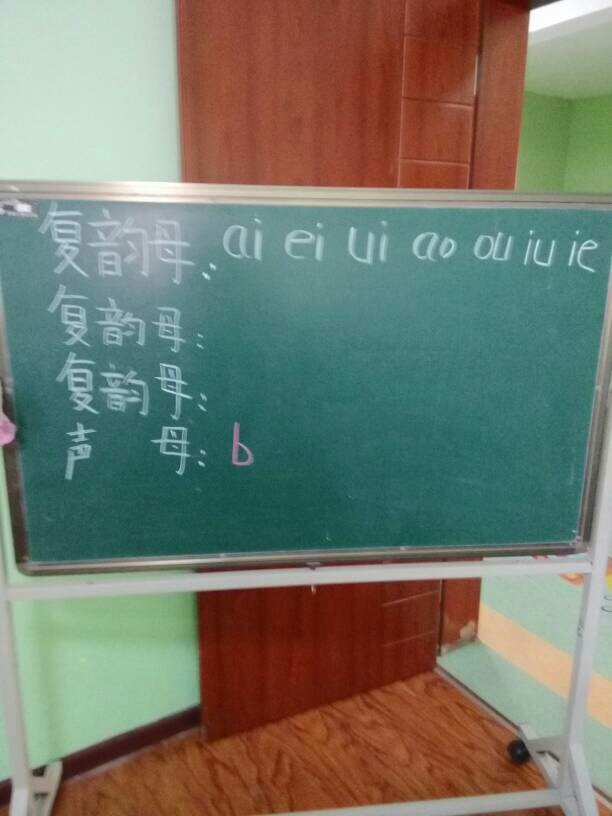 复韵母: ai ei ui ao ou iu ie
复韵母:
复韵母:
声 母: b